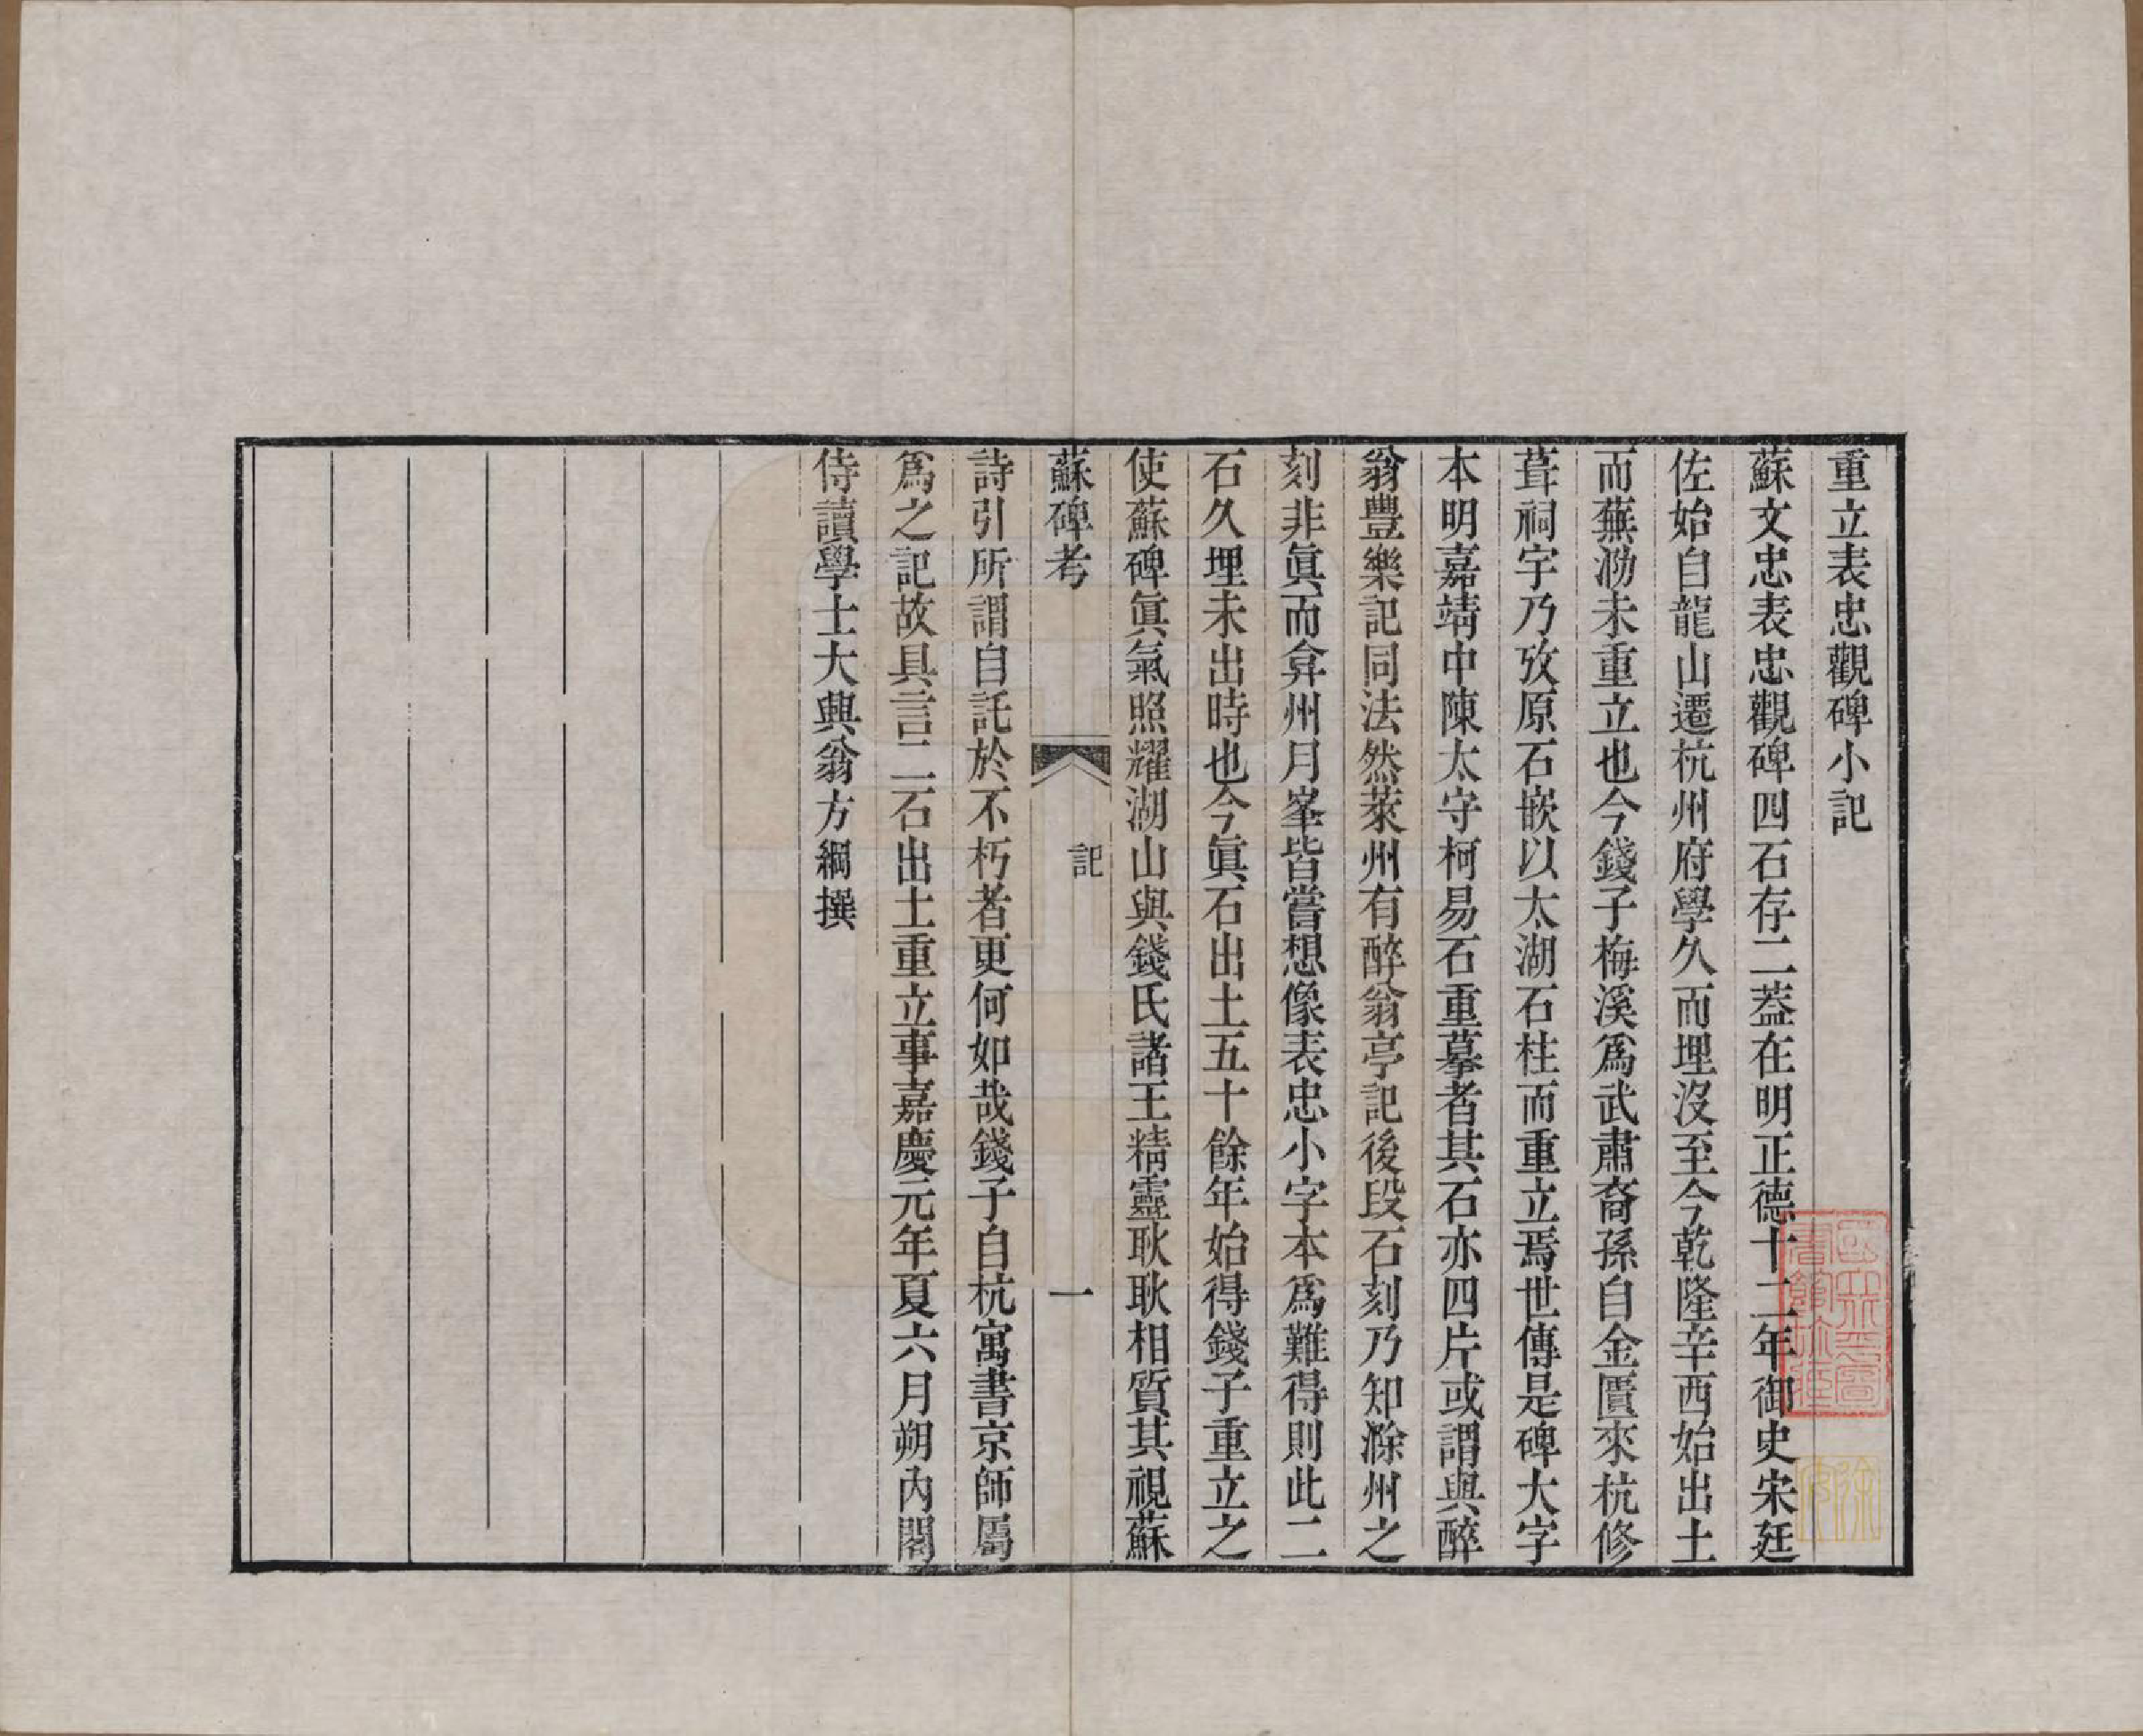 重立表忠觀碑小記
蘇文忠表忠觀碑四石存二葢在明正德十二年御史宋廷
佐始自龍山遷杭州府學久而埋沒至今乾隆辛酉始出土
而蕪泐未重立也今錢子梅溪爲武肅裔孫白金匱來杭修
葺祠宇乃攷原石嵌以太湖石柱而重立焉世傳是碑大字
本明嘉靖中陳太守柯易石重摹者其石亦四片或謂與醉
翁豐樂記同法然萊州有醉翁亭記後段石刻乃知滁州之
刻非眞而弇州月峯皆嘗想像表忠小字本爲難得則此二
石久埋未出時也今眞石出土五十餘年始得錢子重立之
使蘇碑眞氣照耀湖山與錢氏諸王精靈耿耿相質其視蘇
蘇碑考 記 一
詩引所謂自託於不朽者更何如哉錢子自杭寓書京師屬
爲之記故具言二石出土重立事嘉慶元年夏六月朔內閣
侍讀學士大興翁方綱撰